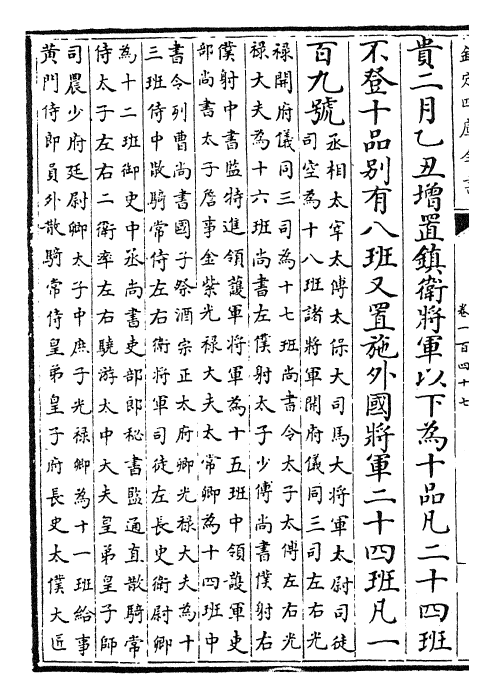 欽定四庫全書
卷一百四十七
貴二月乙丑增置鎮衛將軍以下為十品凡二十四班
不登十品别有八班又置施外國將軍二十四班凡一
百九號
丞相太宰太傅太保大司馬大將軍太尉司徒
司空為十八班諸將軍開府儀同三司左右光
禄開府儀同三司為十七班尚書令太子太傅左右光
禄大夫為十六班尚書左僕射太子少傅尚書僕射右
僕射中書監特進領䕶軍將軍為十五班中領䕶軍吏
部尚書太子詹事金紫光禄大夫太常卿為十四班中
書令列曹尚書國子祭酒宗正太府卿光禄大夫為十
三班侍中散騎常侍左右衛將軍司徒左長史衛尉卿
為十二班御史中丞尚書吏部郎秘書監通直散騎常
侍太子左右二衛率左右驍游太中大夫皇弟皇子師
司農少府廷尉卿太子中庶子光禄卿為十一班給事
黄門侍郎員外散騎常侍皇弟皇子府長史太僕大匠